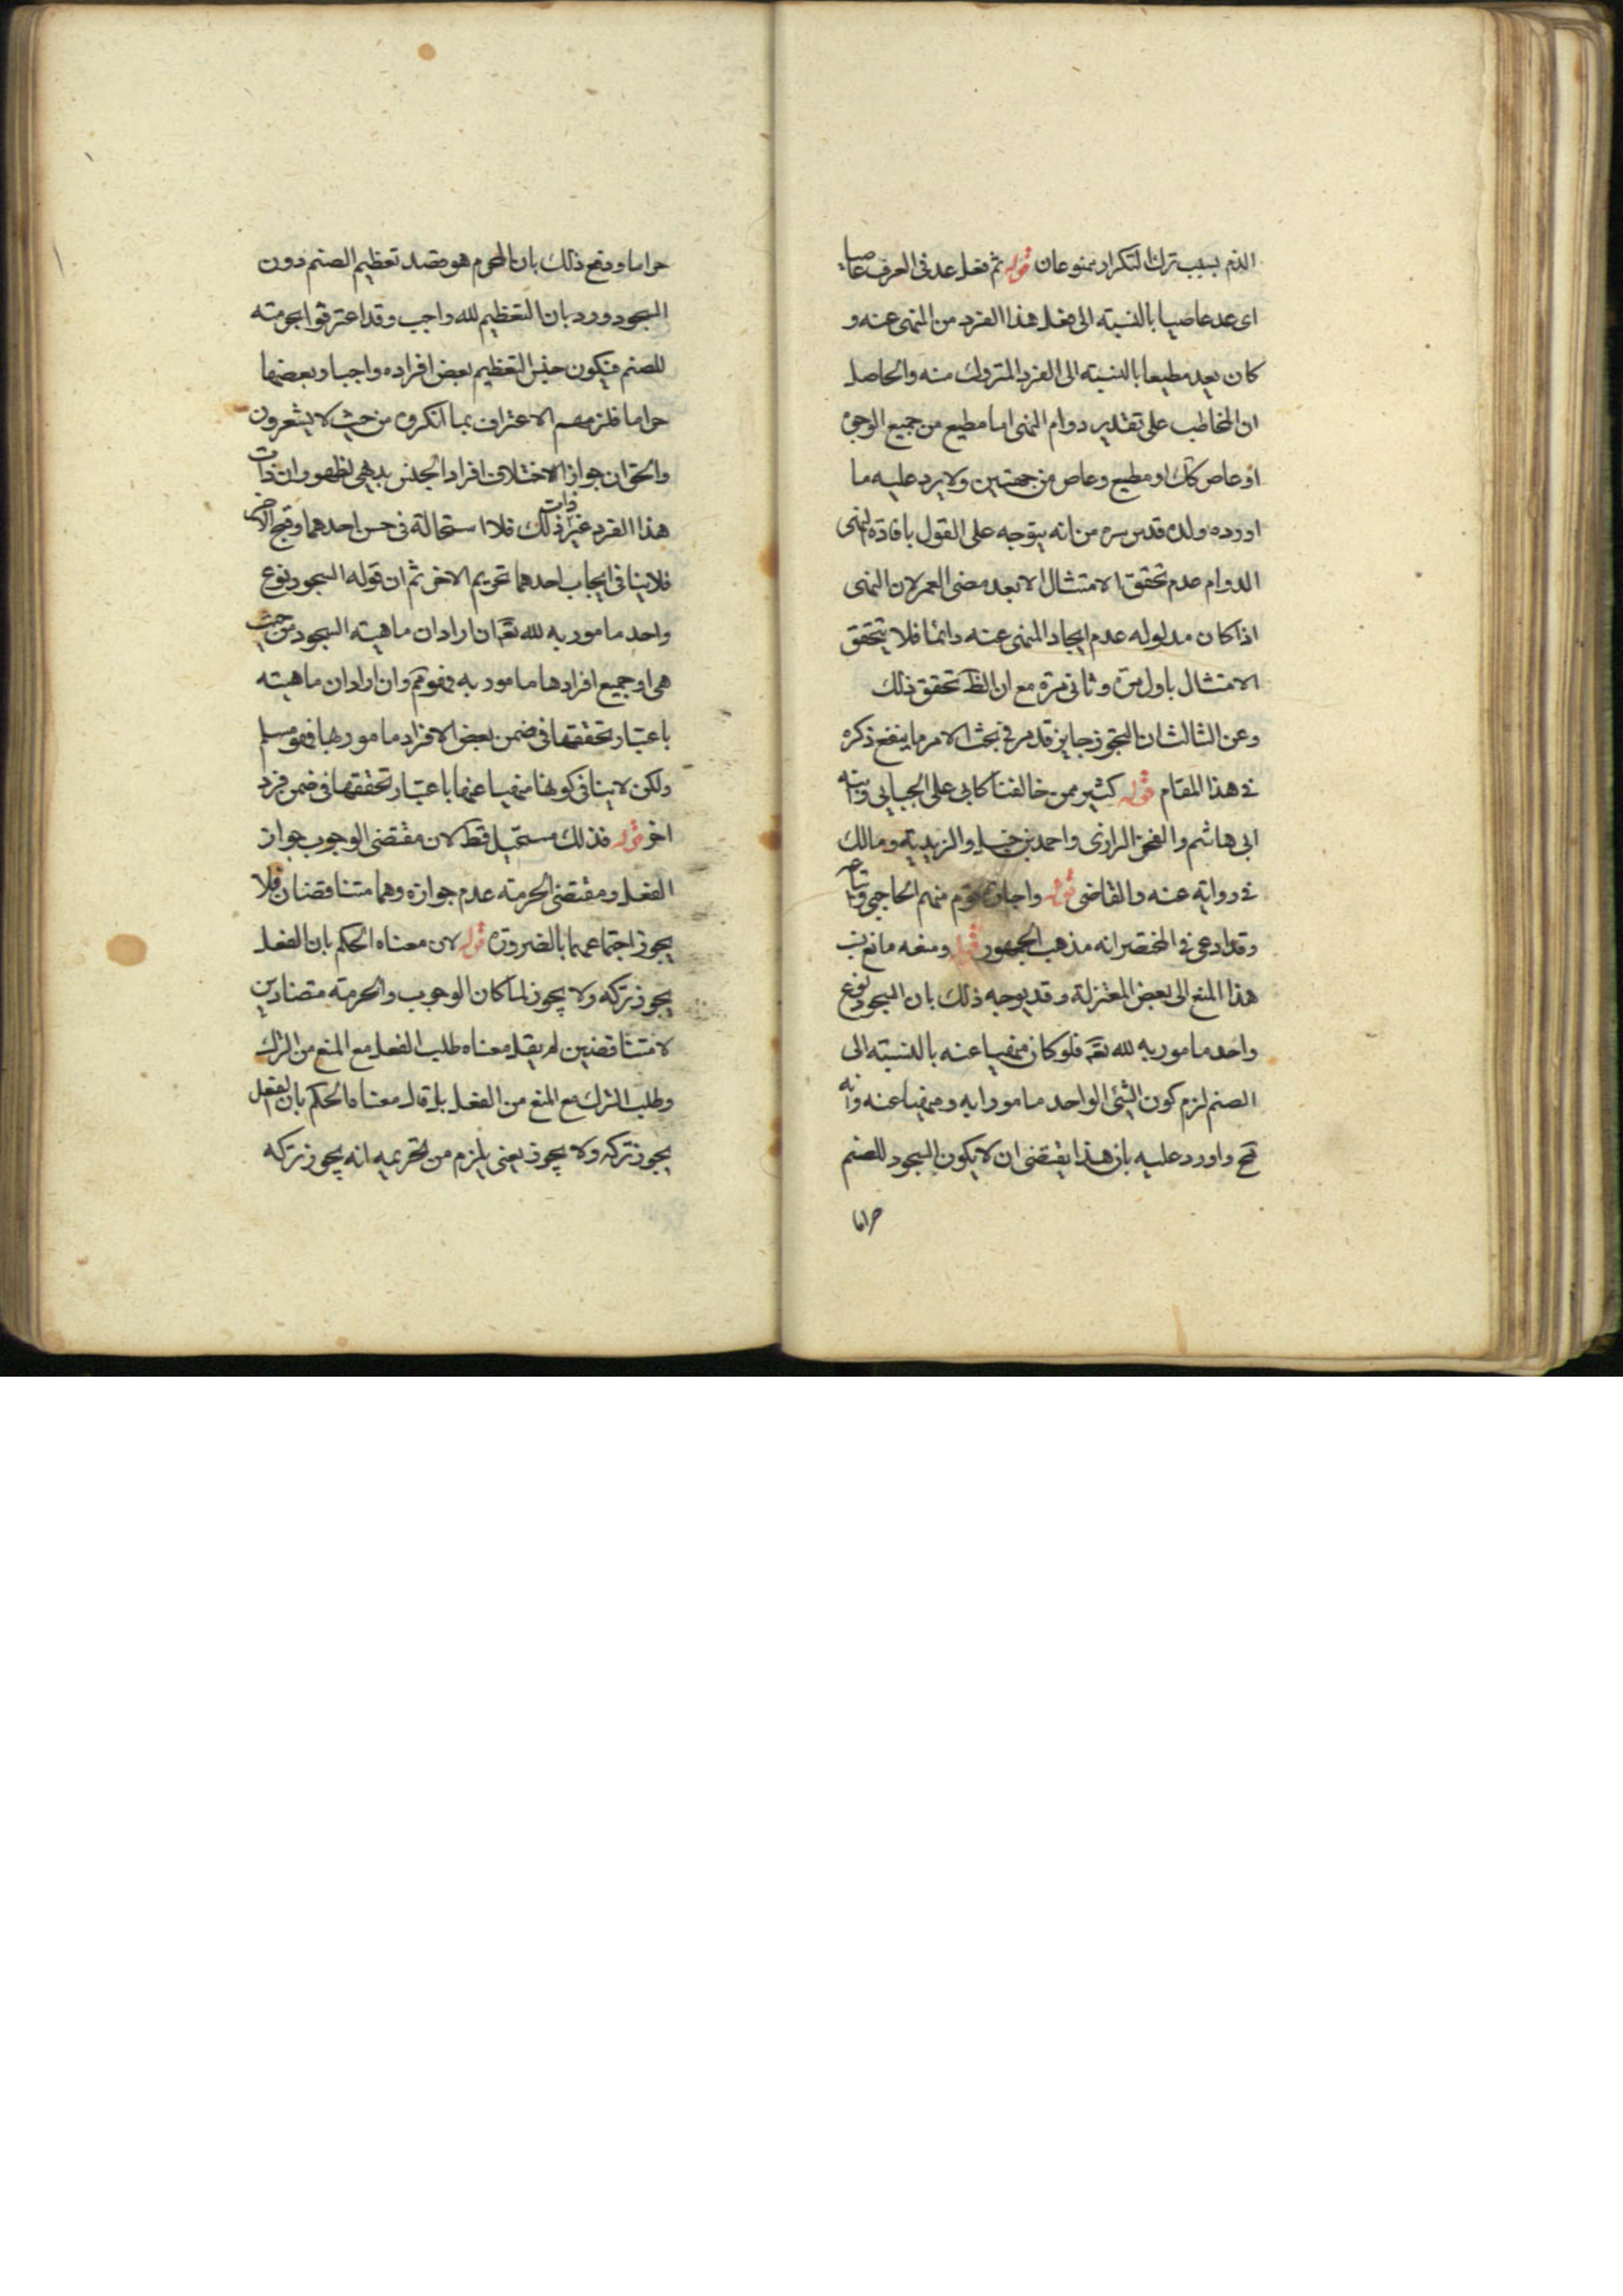 الذم بسبب ترك التكرار ممنوعان قوله ثم فعل عد فى العرف عاصيا
اى عد عاصيا بالنسبته الى فعل هذا الفرد من المنهى عنه و
كان بعيد مطيعا بالنسبته الى الفرد المتروك منه والحاصل
ان المخاطب على تقدير دوام النهى اما مطيع من جميع الوجوه
او عاص كك او مطيع وعاص من جهتين ولا يرد عليه ما
اورده ولده قدس سره من انه يتوجه على القول بافادة النهى
الدوام عدم تحقق الامتثال الا بعد مضى العمر لان النهى
اذا كان مدلوله عدم ايجاد المنهى عنه دائما فلا يتحقق
الامتثال باول مرة وثانى مرة مع ان الظ تحقق ذلك
وعن الثالث ان التجوز جايز قد مر فى بحث الامر ما ينفع ذكره
فى هذا المقام قوله كثير ممن خالفنا كابى على الجبايى وابنه
ابى هاشم والفخر الرازى واحمد بن حنبل والزيدية ومالك
فى رواية عنه والقاضى قوله واجازه قوم منهم الحاجبى
وقد ادعى فى المختصر انه مذهب الجمهور قوله ومنعه مانع نسب
هذا المنع الى بعض المعتزلة وقد يوجه ذلك بان السجود نوع
واحد مامور به لله تعم فلو كان منهيا عنه بالنسبته الى
الصنم لزم كون الشئى الواحد مامورا به ومنهيا عنه وانه
مح واورد عليه بان هذا يقتضى ان لا يكون السجود للصنم
حراما
حراما ودفع ذلك بان المحرم هو قصد تعظيم الصنم دون
السجود ورد بان التعظيم لله واجب وقد اعترفوا بحرمته
للصنم فيكون جنس التعظيم بعض افراده واجبا وبعضها
حراما فلزمهم الاعتراف بما انكروه من حيث لا يشعرون
والحق ان جواز الاختلاف افراد الجنس بديهى لظهور ان ذات
هذا الفرد غير ذات ذلك فلا استحالة فى حسن احدهما وقبح الاخر
فلا ينافى ايجاب احدهما تحريم الاخر ثم ان قوله السجود نوع
واحد مامور به لله تعم ان اراد ان ماهيته السجود من حيث
هى او جميع افرادها مامور به فهو مم وان اراد ان ماهيته
باعتبار تحققها فى ضمن بعض الافراد مامور بها فهو مسلم
ولكن لا ينافى كونها منهيا عنها باعتبار تحققها فى ضمن فرد
اخر قوله فذلك مستحيل قط لان مقتضى الوجوب جواز
الفعل ومقتضى الحرمته عدم جوازه وهما متناقضان فلا
يجوز اجتماعهما بالضرورة قوله لان معناه الحكم بان الفعل
يجوز تركه ولا يجوز لما كان الوجوب والحرمته متضادين
لا متناقضين لم يقل معناه طلب الفعل مع المنع من الترك
وطلب الترك مع المنع من الفعل بل قال معناه الحكم بان الفعل
يجوز تركه ولا يجوز يعنى يلزم من تحريمه انه يجوز تركه